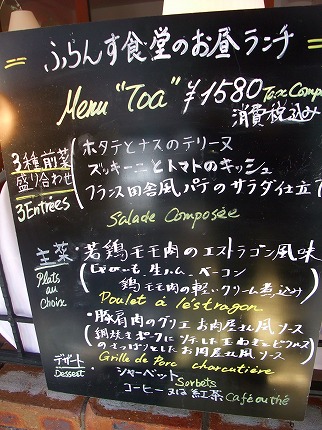 ふらんす食堂のお昼ランチ
Menu "Toa" ¥1580 Tax Comp
消費税込み
3種前菜
盛り合わせ
3 Entrees
ホタテとナスのテリーヌ
ズッキーニとトマトのキッシュ
フランス田舎風パテのサラダ仕立て
Salade Composée
主菜
Plats
au
Choix
・若鶏モモ肉のエストラゴン風味
生ハム、ベーコン
鶏モモ肉の軽いクリーム煮込み)
Poulet à l'estragon
・豚肩肉のグリエ お肉屋さん風ソース
(網焼きポークにソテした玉ねぎとピクルス
のさっぱりとしたお肉屋さん風ソース)
Grille de Porc charcutière
デザート
Dessert
・シャーベット
Sorbets
コーヒー又は紅茶 Café ou thé